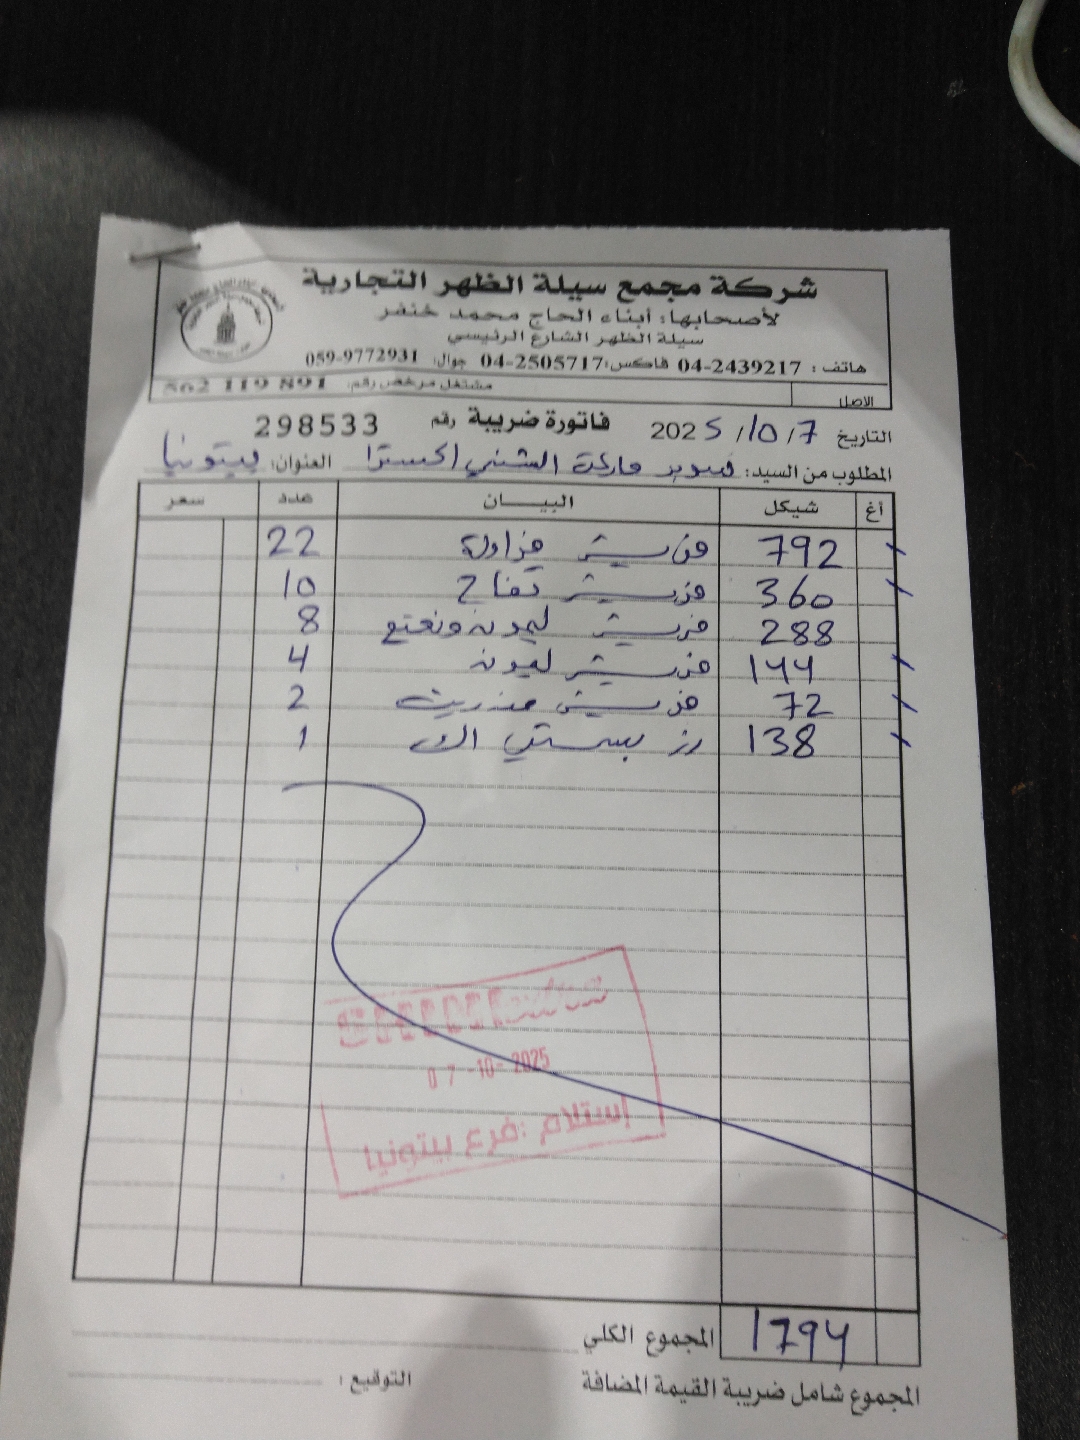 شركة مجمع سيلة الظهر التجارية
لأصحابها: أبناء الحاج محمد خنفر
سيلة الظهر الشارع الرئيسي
هاتف : 04-2439217 فاكس: 04-2505717 جوال: 059-9772931
مشتغل مرخص رقم: 562 119 891
الاصل
التاريخ 7 / 10 / 2025 فاتورة ضريبة رقم 298533
المطلوب من السيد: سوبر ماركت الشني اكسترا العنوان: بيتونيا
أغ شيكل البيـــان عدد سعر
792 فريش فراولة 22
360 فريش تفاح 10
288 فريش ليمون ونعنع 8
144 فريش ليمون 4
72 فريش مندرين 2
138 رز بسمتي 1
07-10-2025
إستلام :فرع بيتونيا
المجموع الكلي 1794
المجموع شامل ضريبة القيمة المضافة التوقيع :